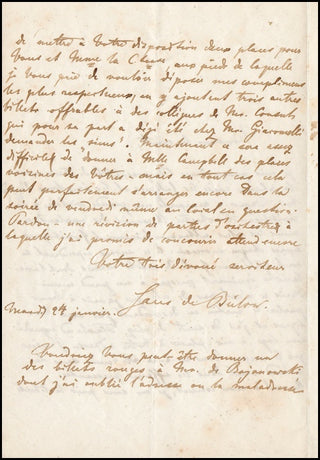 de mettre à Votre disposition deux places pour
Vous et Mme la Ctesse, aux pieds de laquelle
je Vous prie de vouloir déposer mes compliments
les plus respectueux, en y ajoutant trois autres
billets offrables à des collègues de Mr. Consul
qui pour sa part a déjà été chez Mr. Giacomelli
demander les "siens". Maintenant ce sera assez
difficile de donner à Mlle des places
voisines des Vôtres mais en tout cas cela
peut parfaitement s'arranger encore dans la
soirée de vendredi même au local en question.
Pardon - une révision de parties d'orchestre à
laquelle j'ai promis de concourir attend encore
Votre très dévoué serviteur
Hans de Bülow.
Mardi 24 janvier.
Voudriez Vous peut-être donner un
des billets rouges à Mr. de Bojanowski
dont j'ai oublié l'adresse ou la maladresse